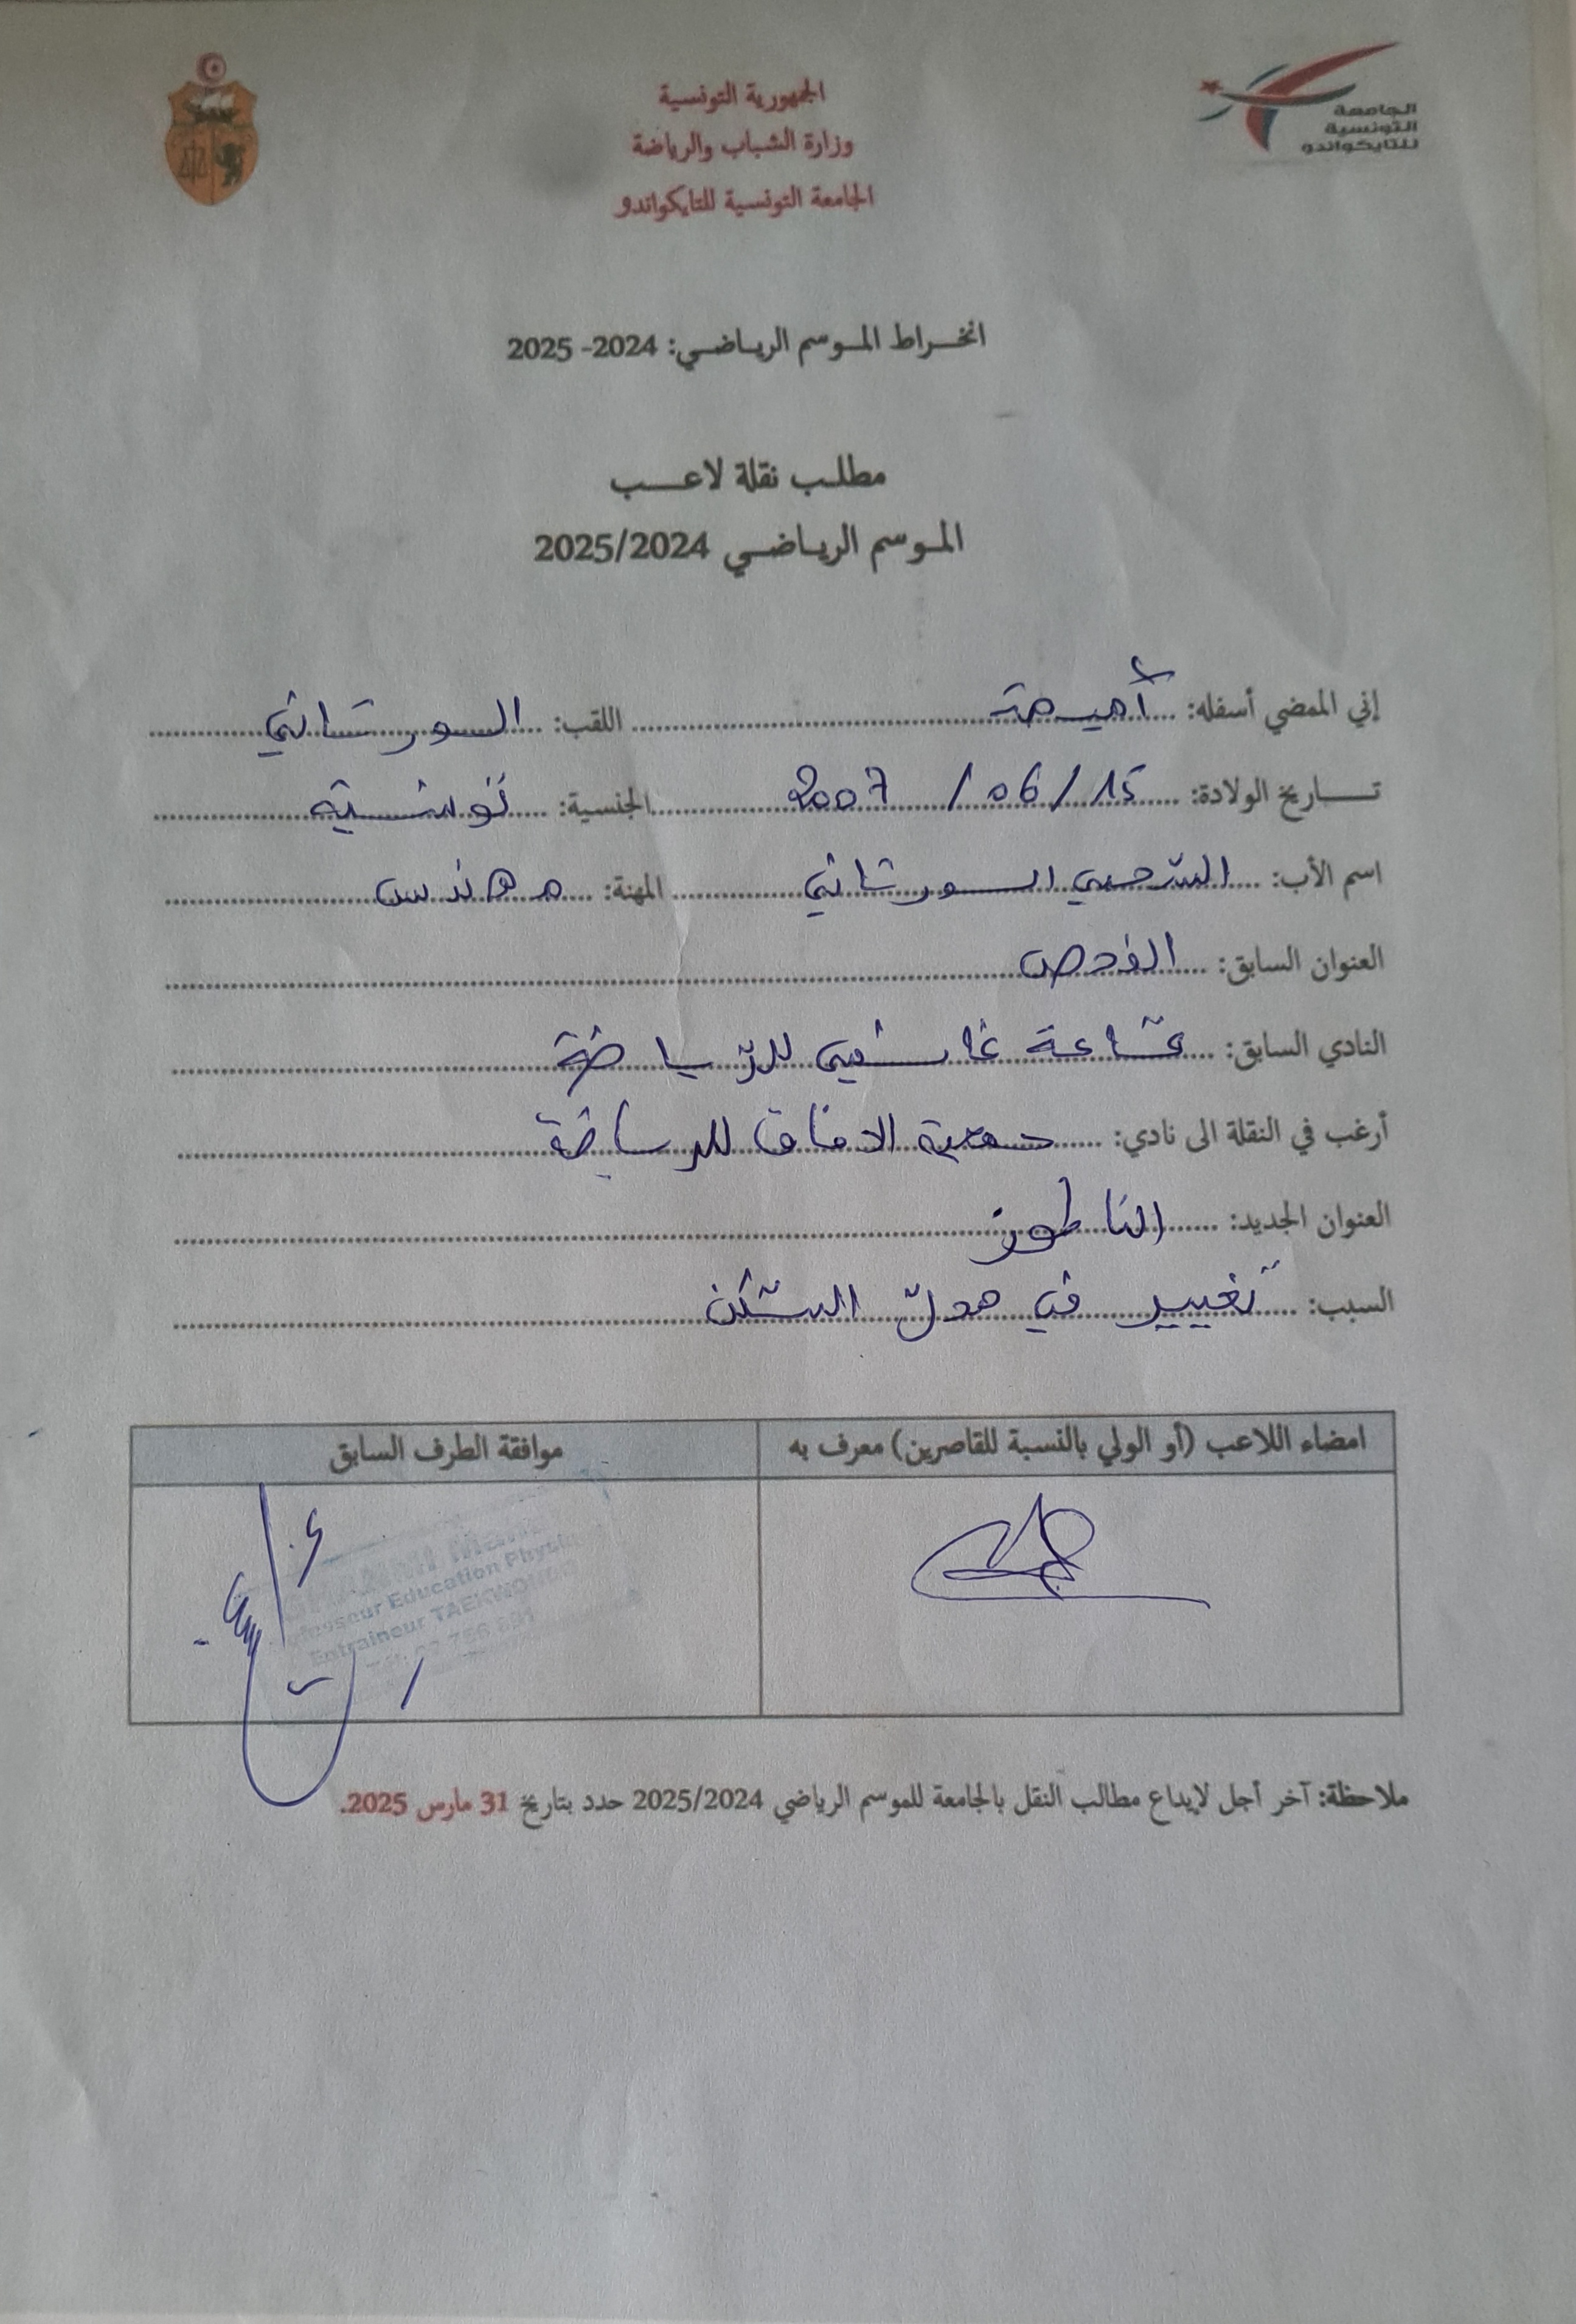 الجمهورية التونسية
وزارة الشباب والرياضة
الجامعة التونسية للتايكواندو
الجامعة
التونسية
للتايكواندو
انخراط الموسم الرياضي: 2024- 2025
مطلب نقلة لاعب
الموسم الرياضي 2025/2024
إني الممضي أسفله: أميمة اللقب: السورتاني
تاريخ الولادة: 15/06/2007 الجنسية: تونسية
اسم الأب: السورتاني المهنة: مهندس
العنوان السابق: الفحص
النادي السابق: قاعة للرياضة
أرغب في النقلة الى نادي: جمعية الافاق للرياضة
العنوان الجديد: الناظور
السبب: تغيير في محل السكن
امضاء اللاعب (أو الولي بالنسبة للقاصرين) معرف به
موافقة الطرف السابق
Professeur Education Physique
Entraineur TAEKWONDO
ملاحظة: آخر أجل لإيداع مطالب النقل بالجامعة للموسم الرياضي 2025/2024 حدد بتاريخ 31 مارس 2025.